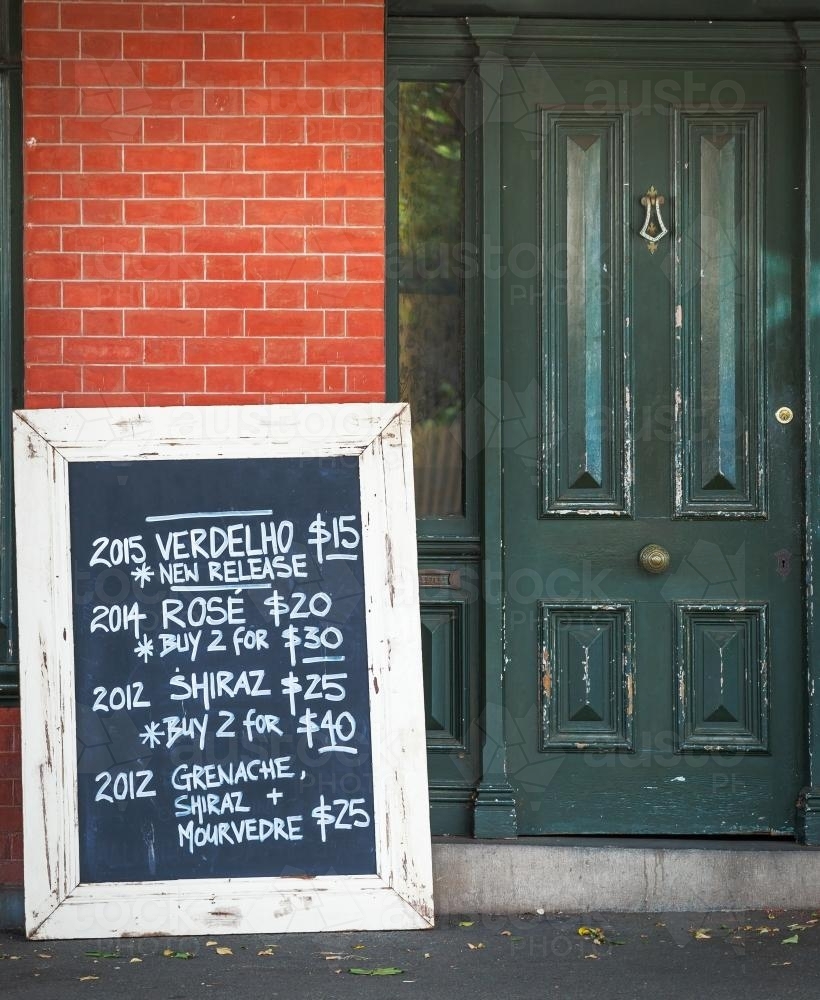 2015 VERDELHO $15
* NEW RELEASE
2014 ROSÉ $20
* BUY 2 FOR $30
2012 SHIRAZ $25
* BUY 2 FOR $40
2012 GRENACHE,
SHIRAZ +
MOURVEDRE $25
austock
PHOTO